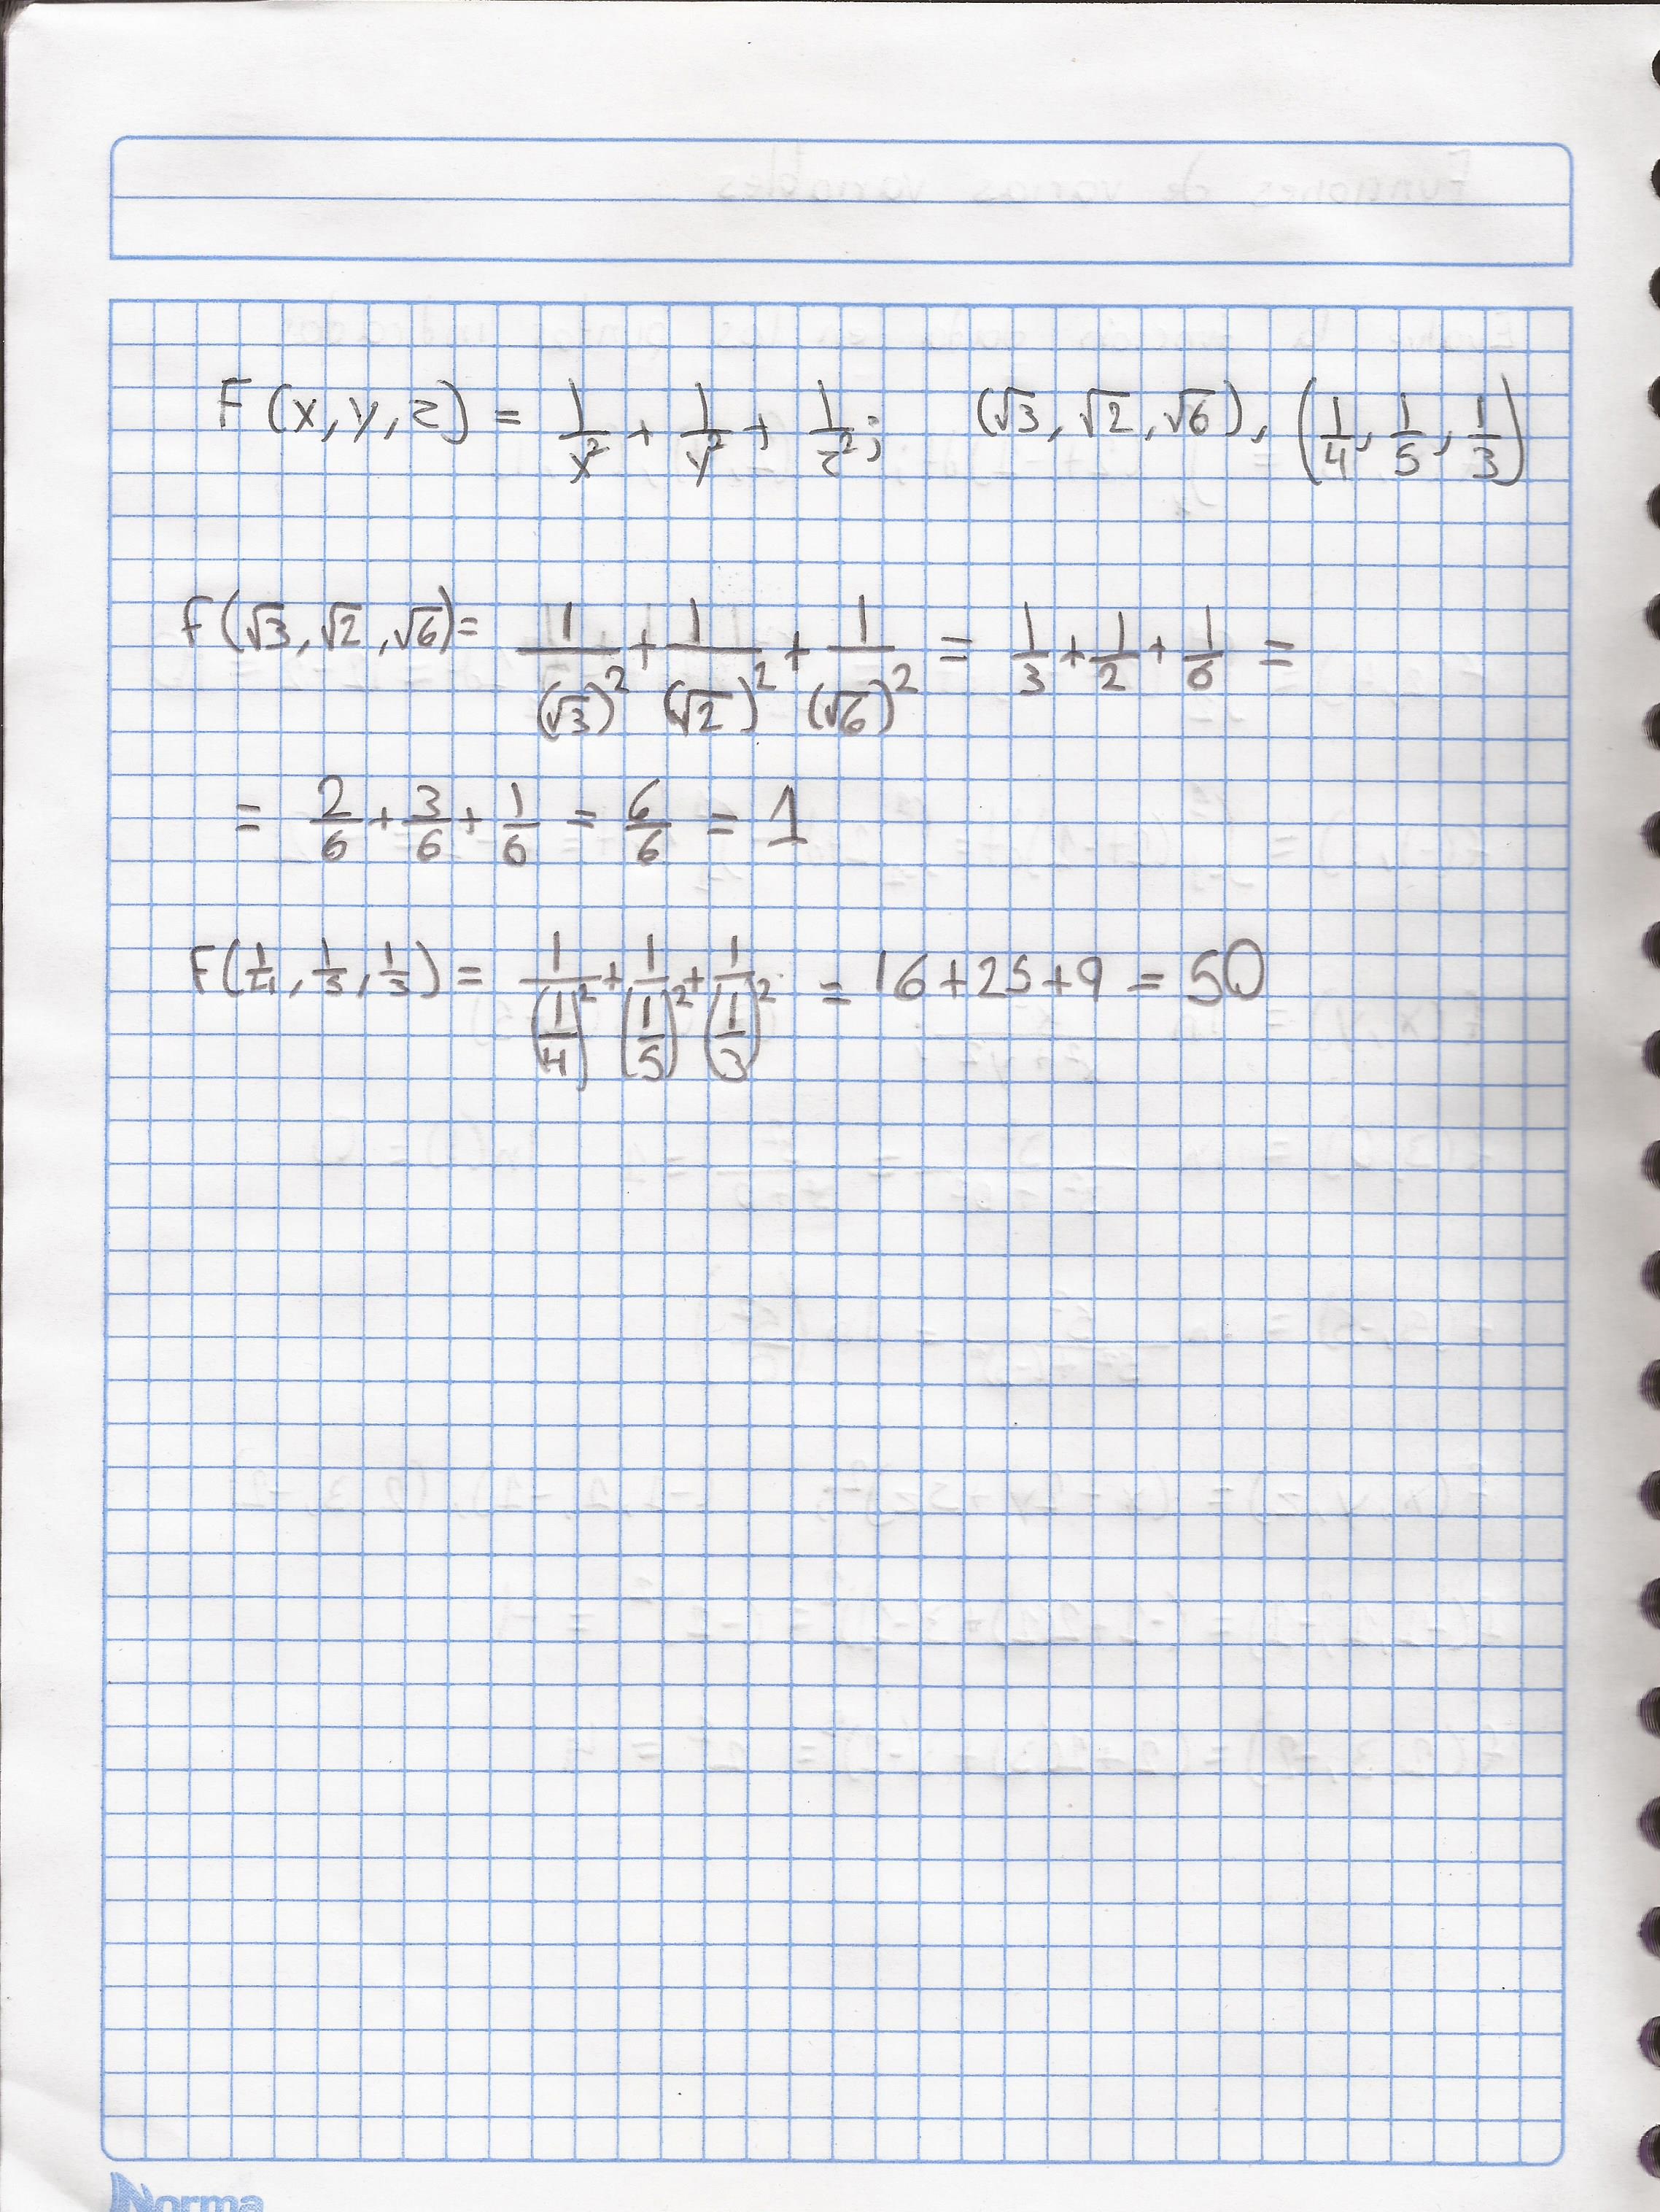 F(x,y,z) = 1/x² + 1/y² + 1/z²; (√3,√2,√6), (1/4, 1/5, 1/3)
F(√3,√2,√6)= 1/(√3)² + 1/(√2)² + 1/(√6)² = 1/3 + 1/2 + 1/6 =
= 2/6 + 3/6 + 1/6 = 6/6 = 1
F(1/4, 1/5, 1/3) = 1/(1/4)² + 1/(1/5)² + 1/(1/3)² = 16+25+9 = 50
Norma